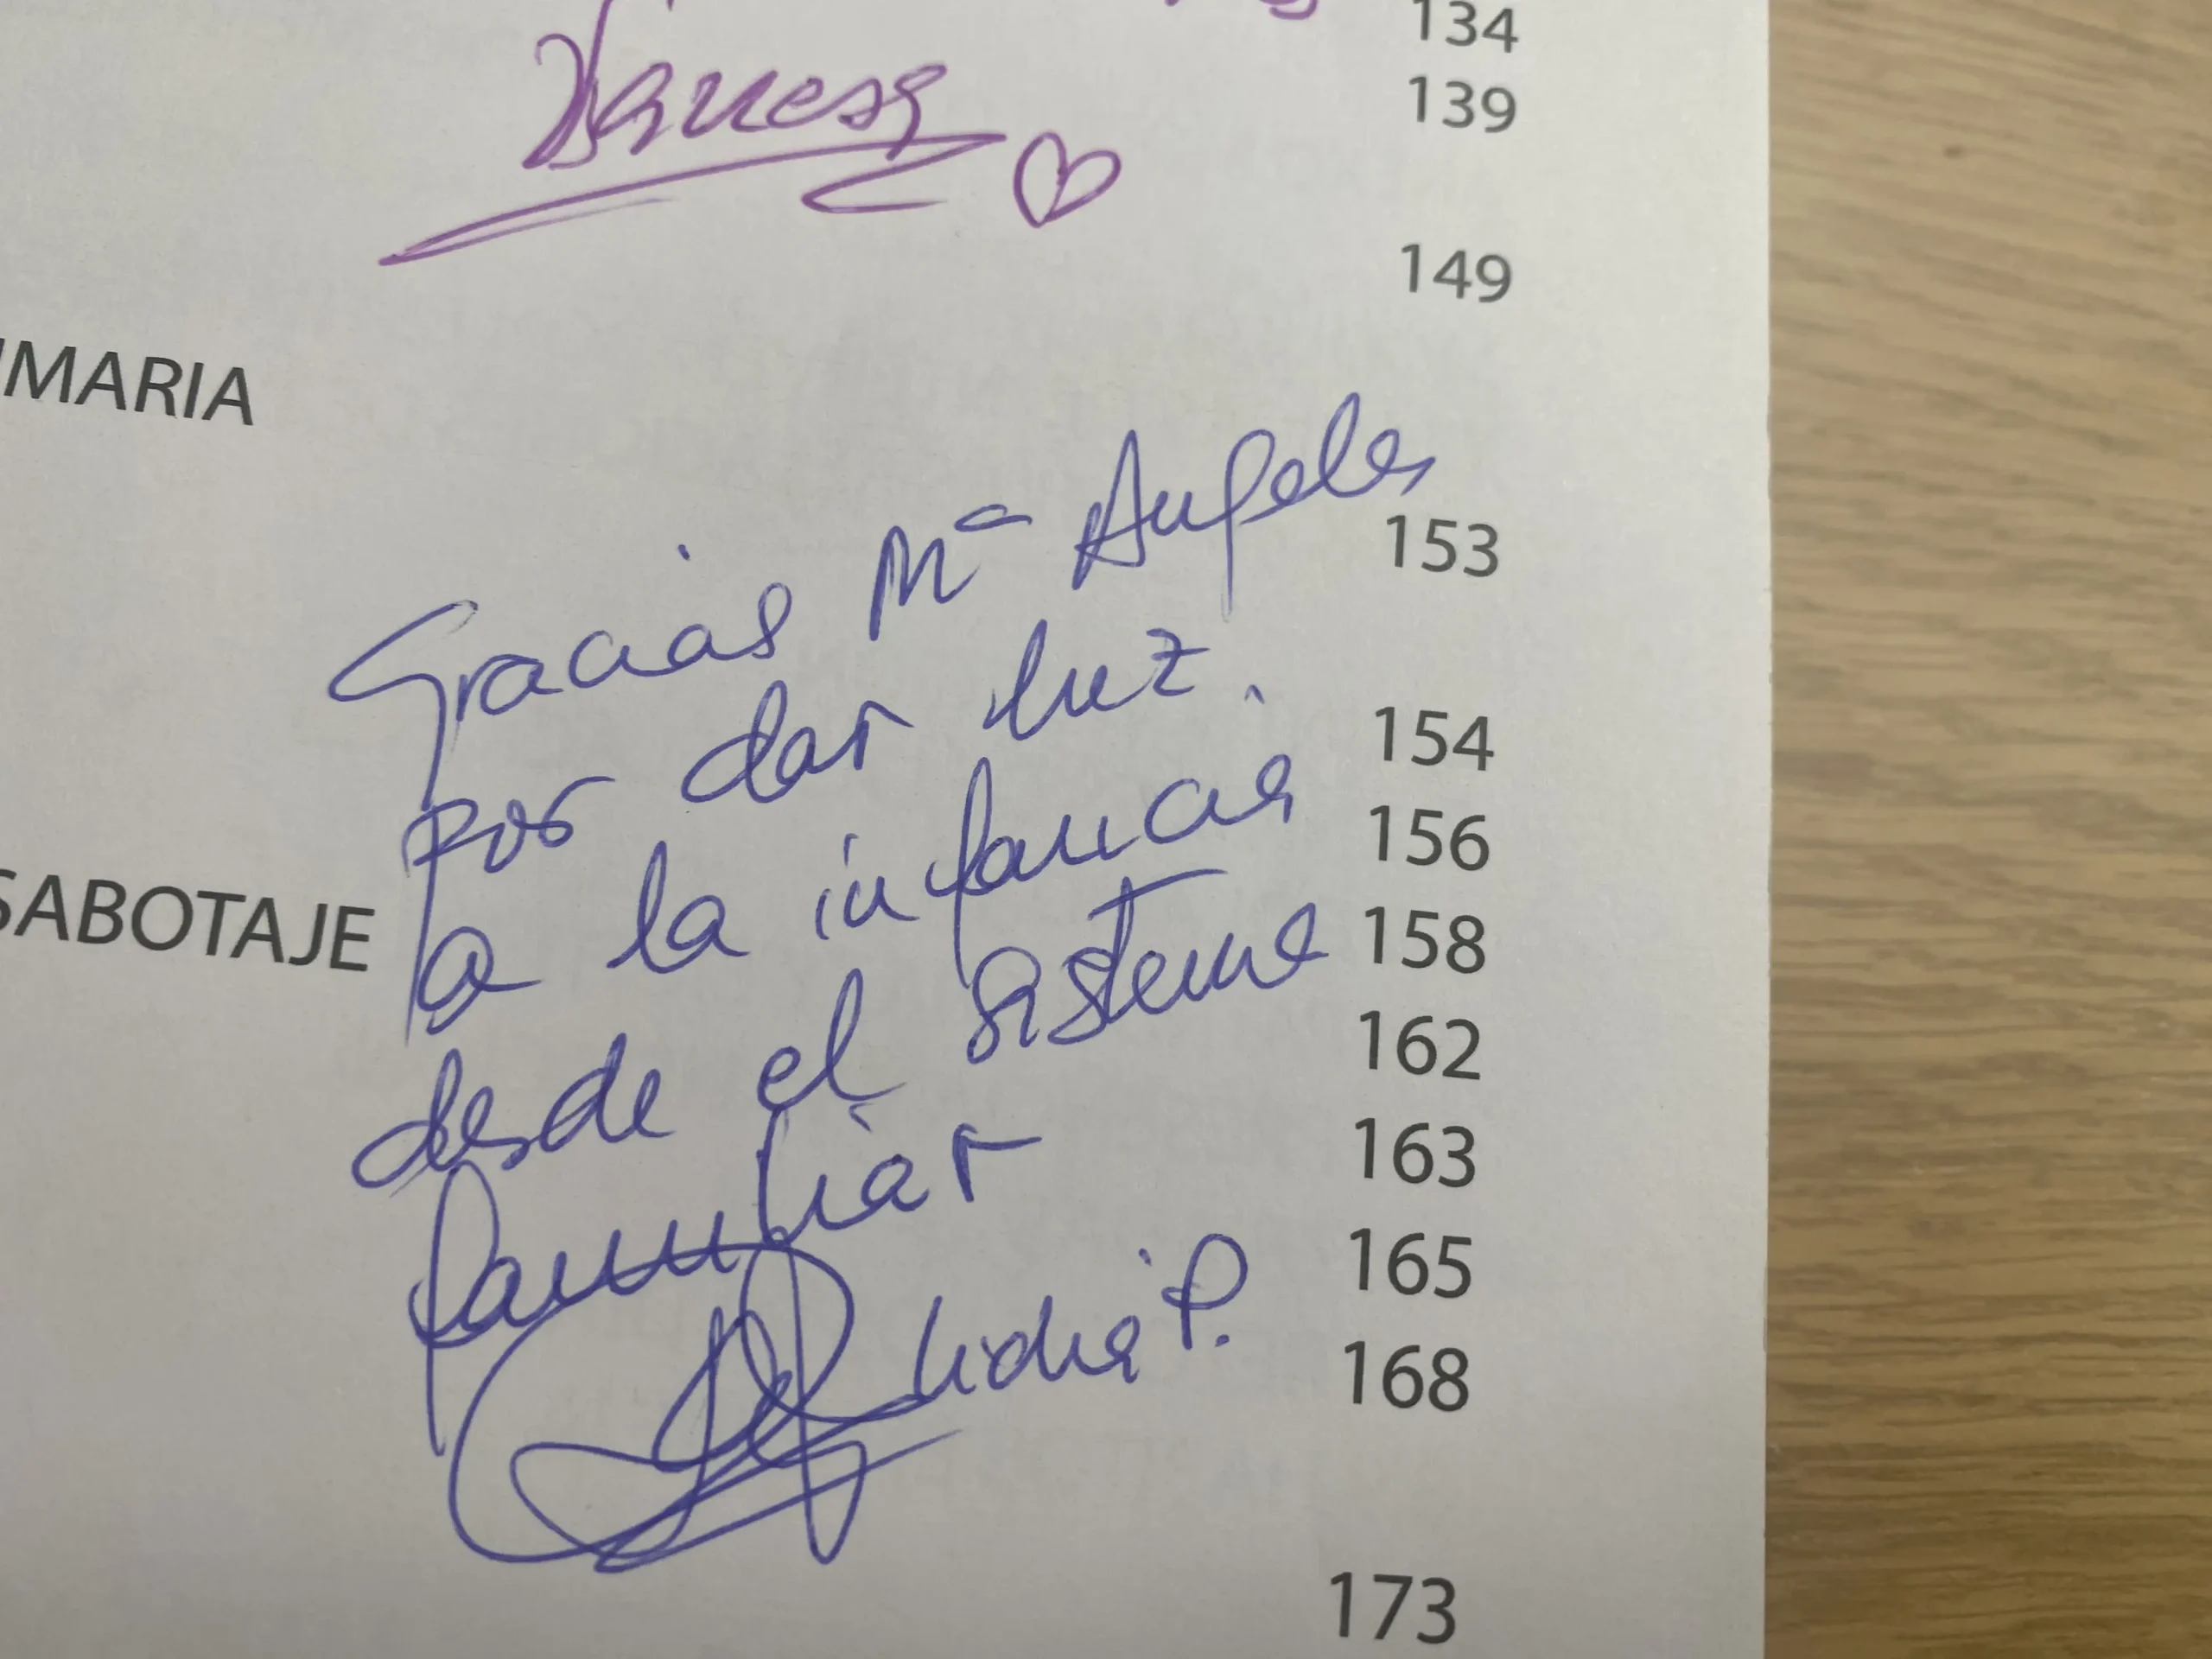 134
Vanesa
139
149
IMARIA
Gracias Mª Angeles
153
por dar luz
154
a la infancia
156
SABOTAJE
desde el sistema
158
162
familiar
163
Lidia P.
165
168
173